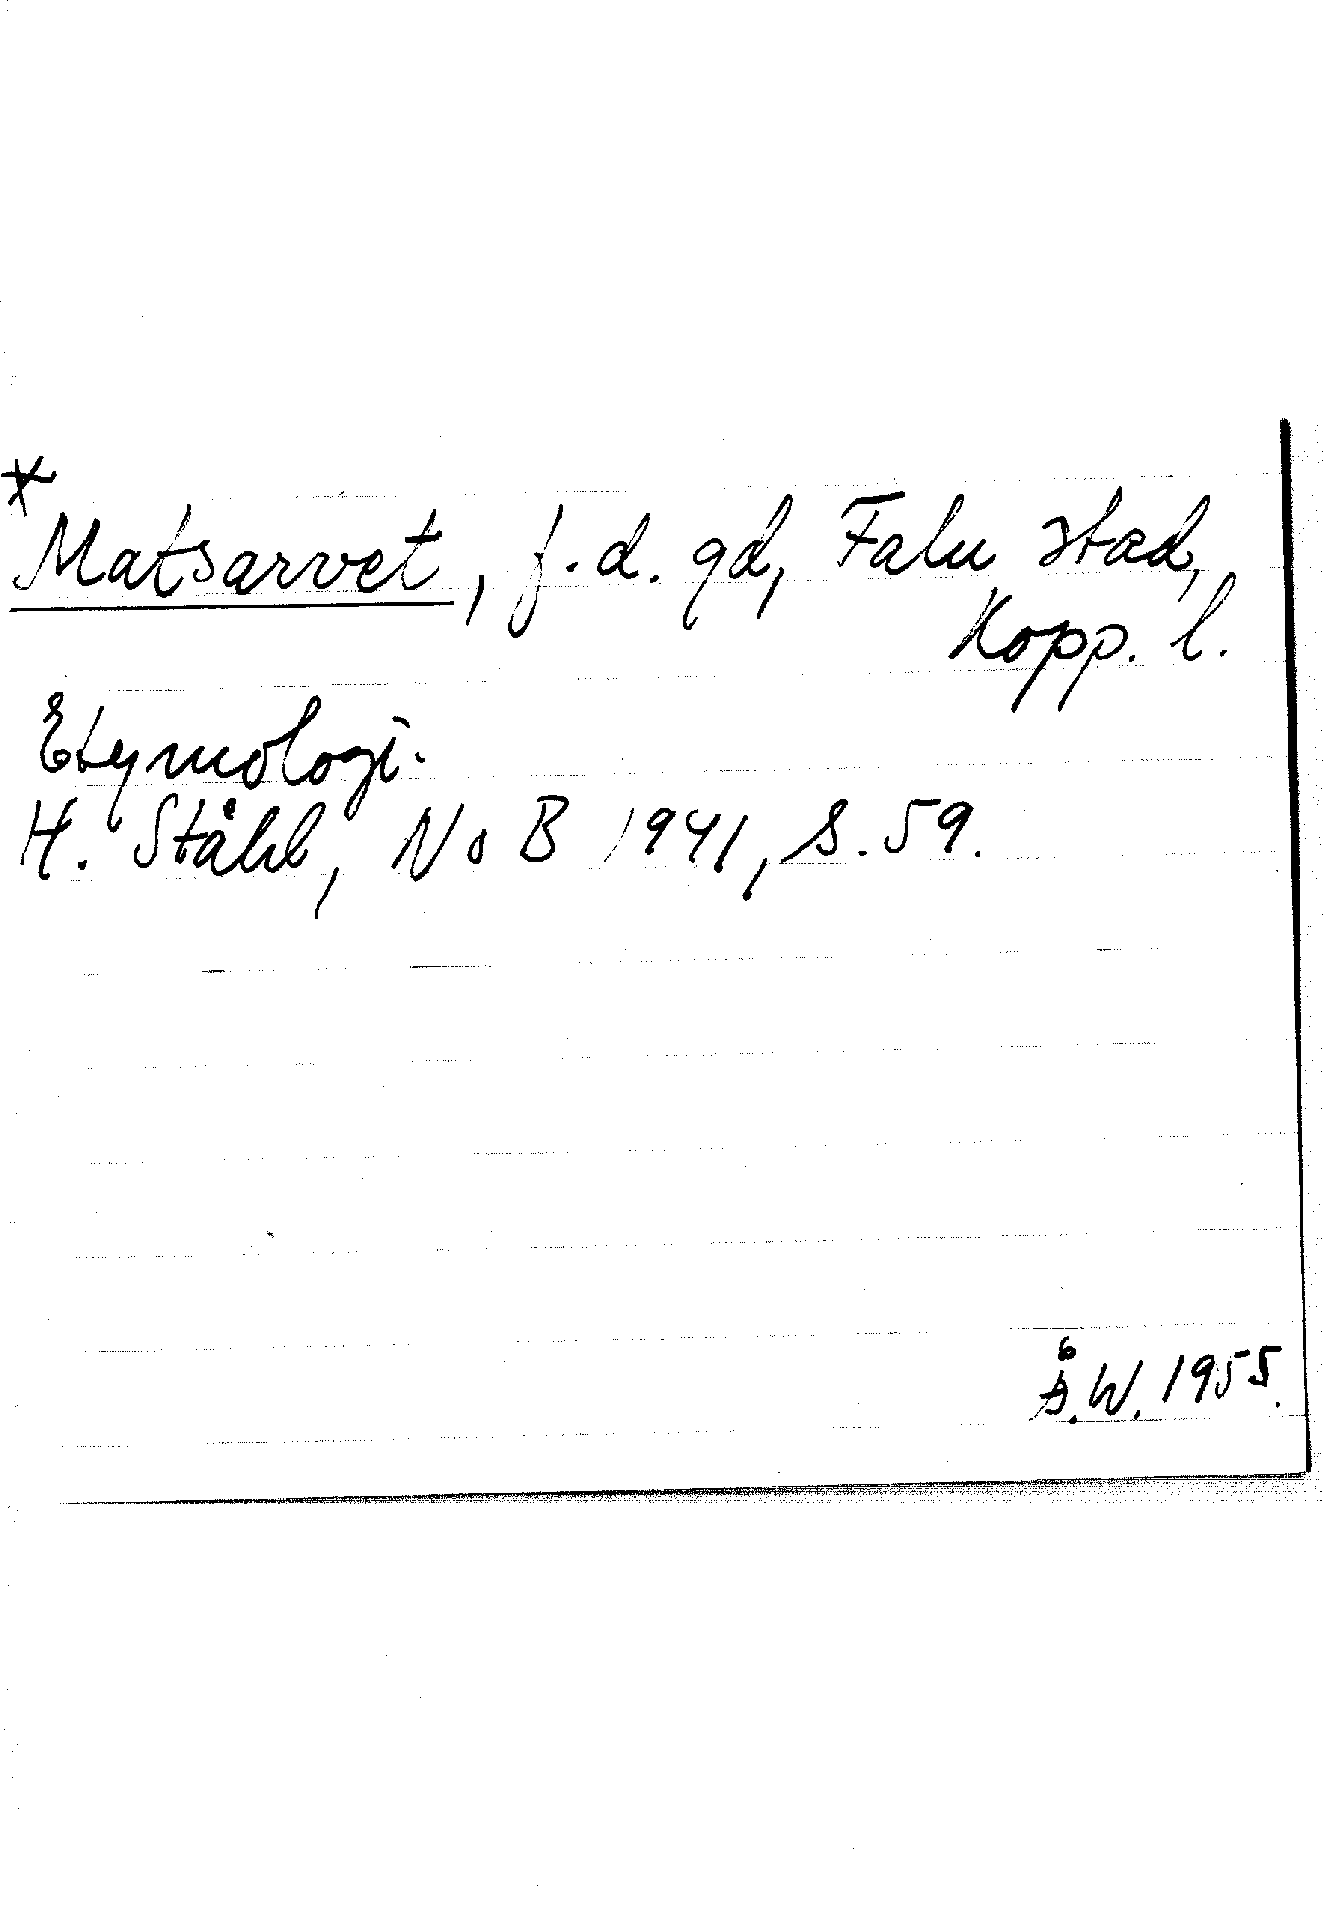 *
Matsarvet, f.d. gd, Falu stad,
Kopp. l.
Etymologi.
H. Ståhl, NoB 1941, S. 59.
Å.W. 1955.